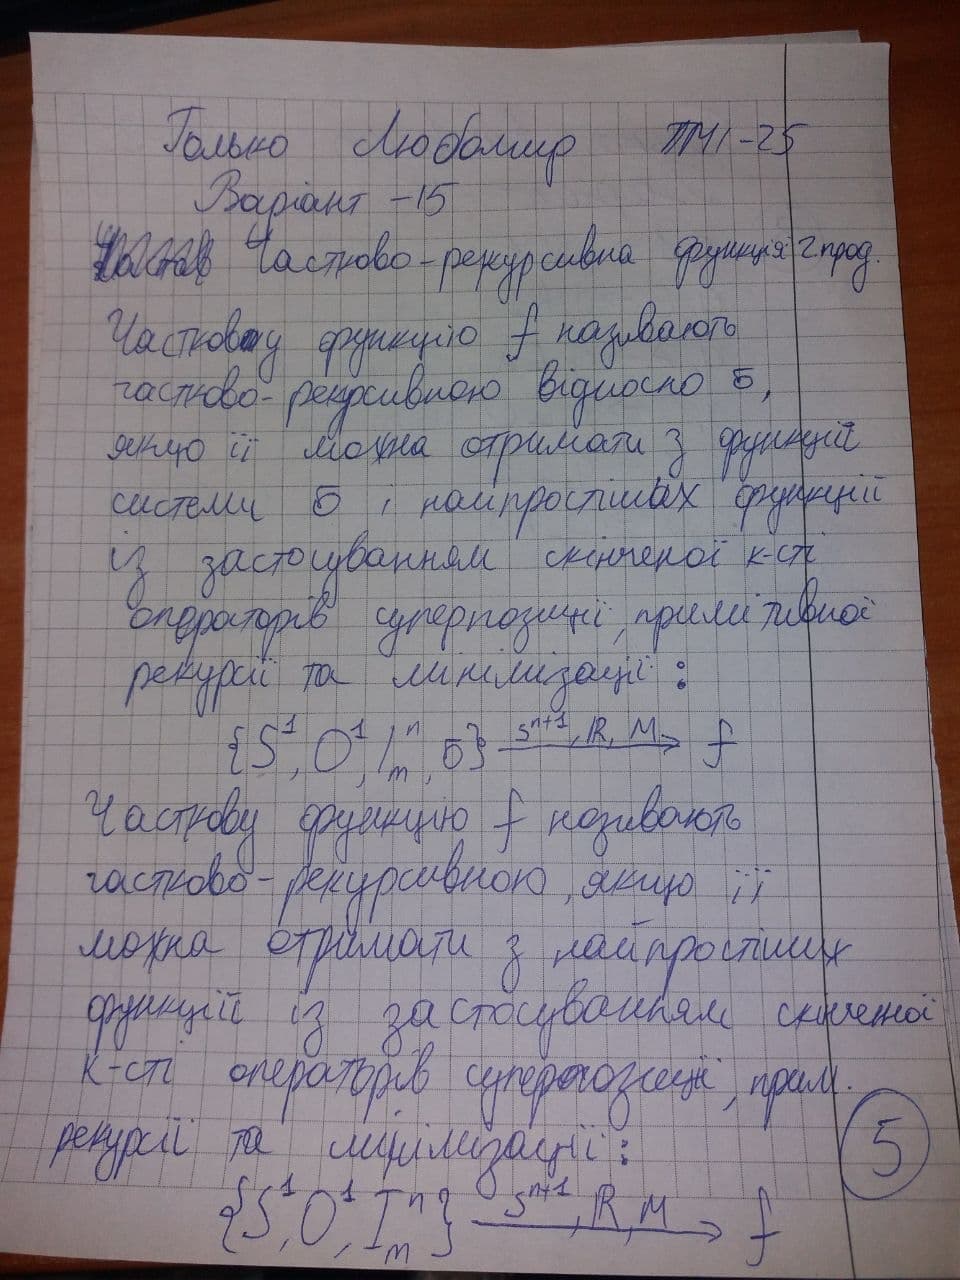 Голько Любомир ПМІ-25
Варіант -15
Частково-рекурсивна функція 2 прод.
Часткову функцію f називають
частково-рекурсивною відносно б,
якщо її можна отримати з функцій
системи б і найпростіших функцій
із застосуванням скінченої к-сті
операторів суперпозиції, примітивної
рекурсії та мінімізації:
{S¹, O¹, Iₘⁿ, б} Sⁿ⁺¹, R, M → f
Часткову функцію f називають
частково-рекурсивною, якщо її
можна отримати з найпростіших
функцій із застосуванням скінченої
к-сті операторів суперпозиції, прим.
рекурсії та мінімізації:
5
{S¹, O¹, Iₘⁿ} Sⁿ⁺¹, R, M → f